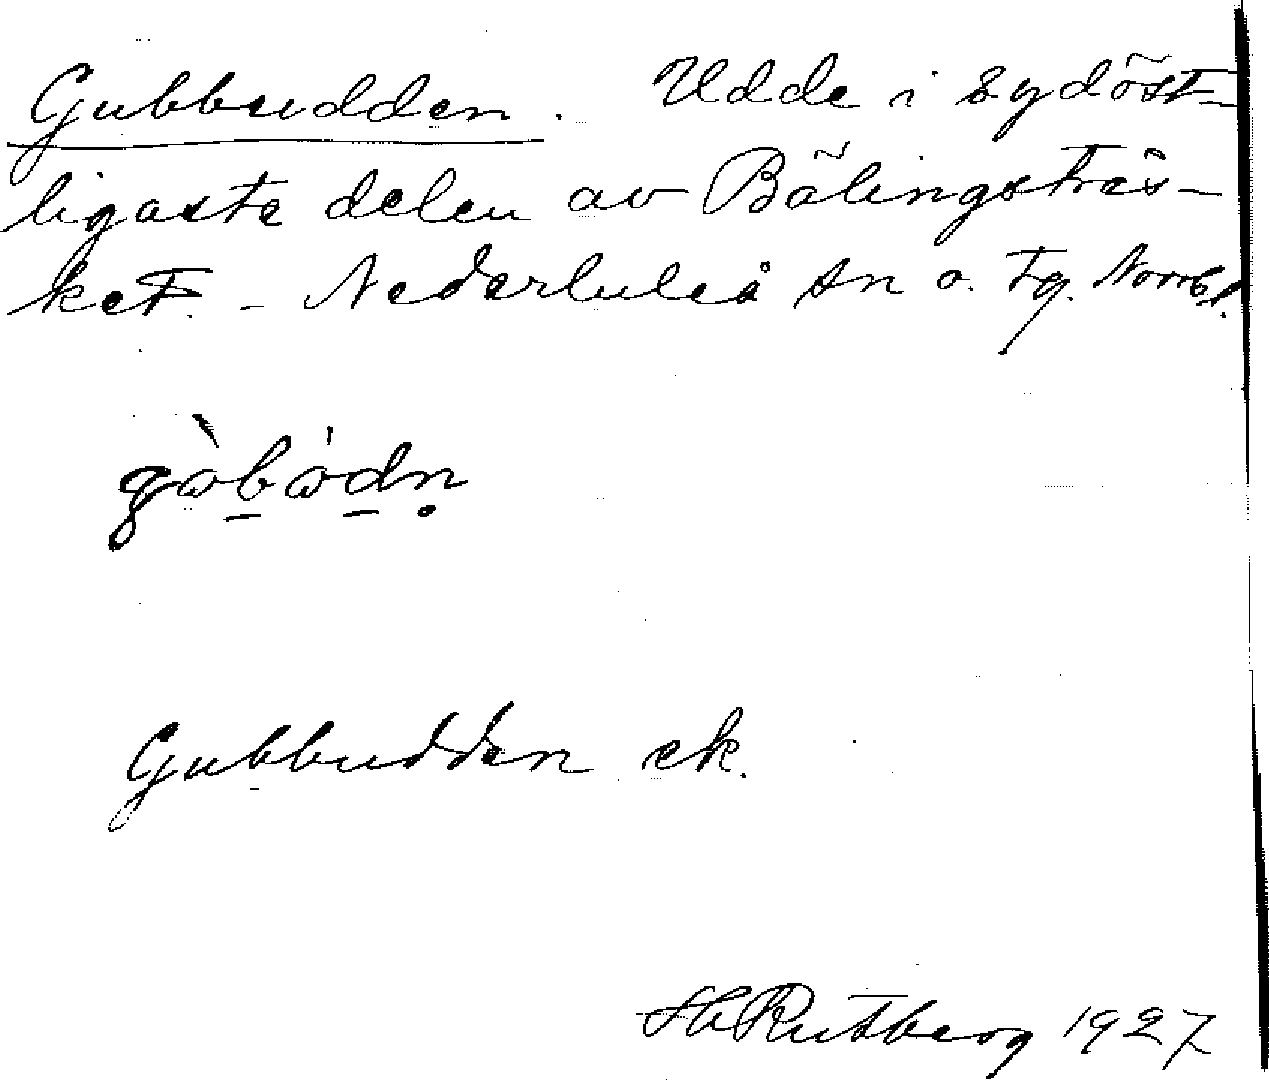 Gubbudden. Udde i sydöst-
ligaste delen av Bälingsträs-
ket. - Nederluleå sn o. tg. Norrb.
gòbódn
Gubbudden ek.
H Rutberg 1927